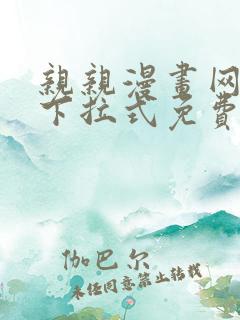 親親漫畫网
下拉式免費
伽巴尔
未经同意禁止转载